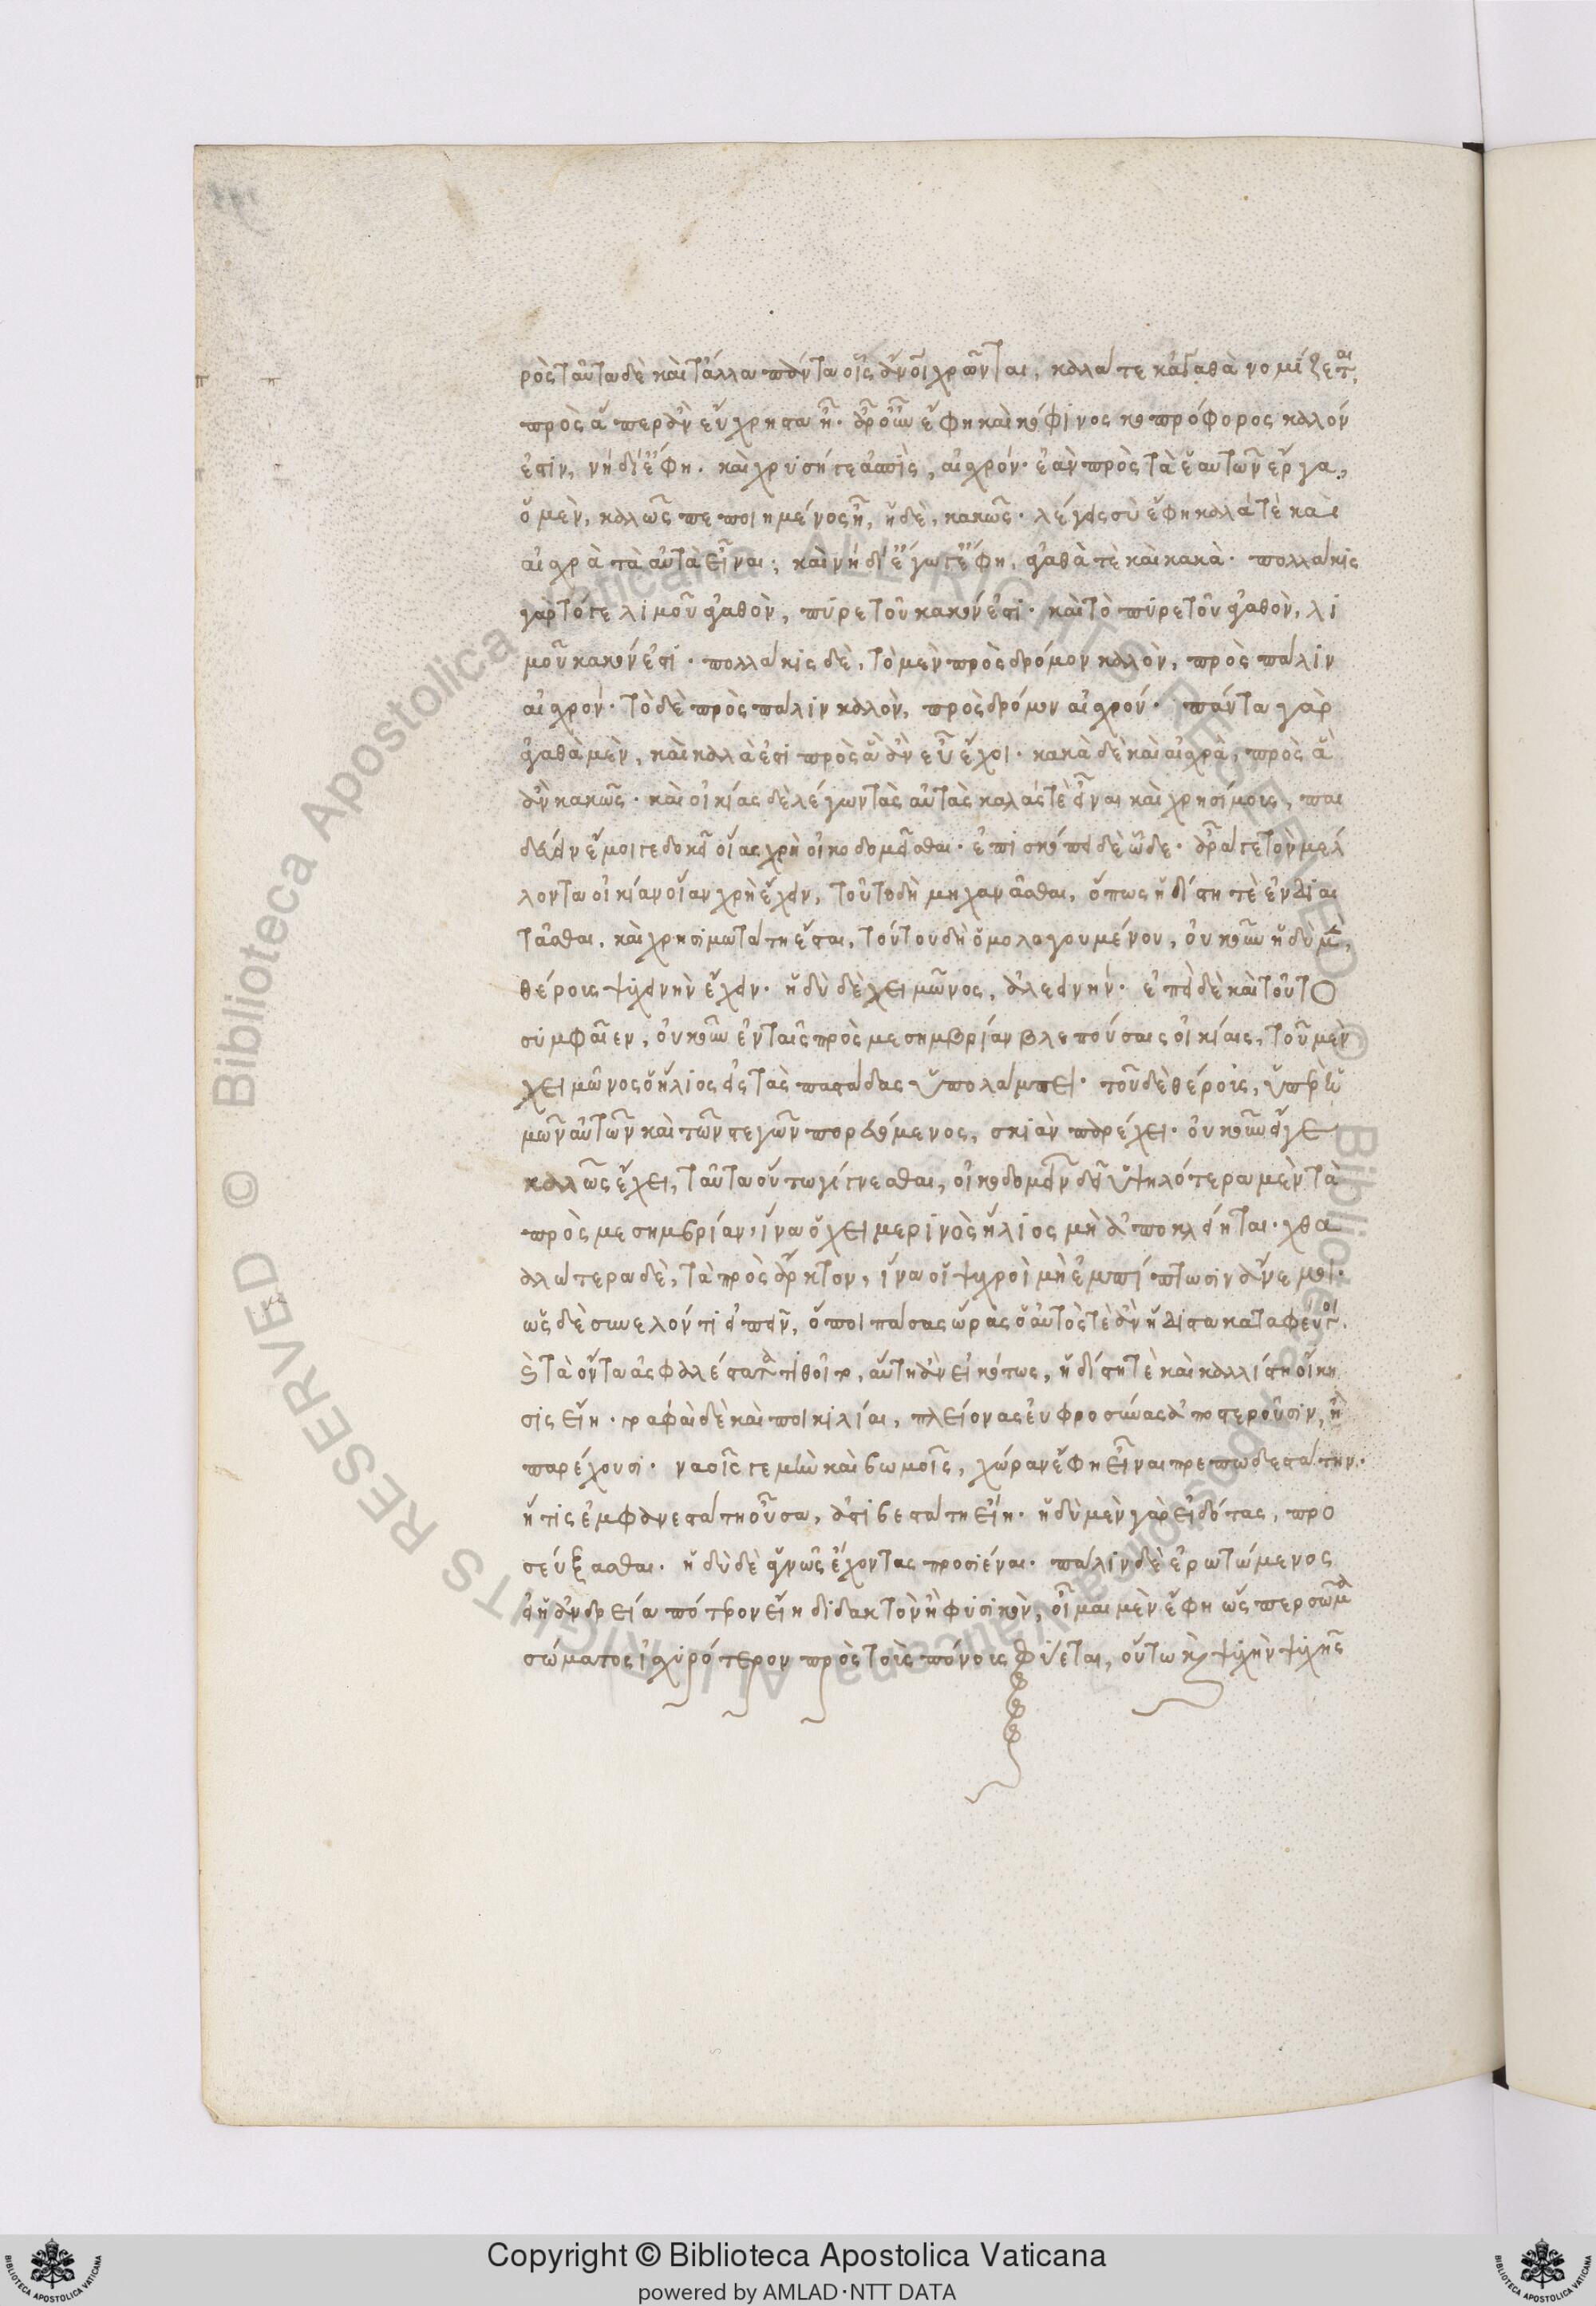 ρὸς ταῦτα δὲ καὶ τἆλλα πάντα οἷς ἄνοι χρῶνται, καλά τε κἀγαθὰ νομίζεται,
πρὸς ἅπερ ἂν εὔχρηστα ᾖ. ἆρ' οὖν ἔφη καὶ κόφινος κοπρόφορος καλόν
ἐστιν, νὴ δί' ἔφη. καὶ χρυσῆ γε ἀσπὶς, αἰσχρόν. ἐὰν πρὸς τὰ ἑαυτῶν ἔργα,
ὁ μὲν, καλῶς πεποιημένος ᾖ, ἡ δὲ, κακῶς. λέγεις σὺ ἔφη καλά τὲ καὶ
αἰσχρὰ τὰ αὐτὰ εἶναι; καὶ νὴ δί' ἔγωγ' ἔφη, ἀγαθὰ τὲ καὶ κακὰ. πολλάκις
γὰρ τό γε λιμοῦ ἀγαθὸν, πυρετοῦ κακόν ἐστι. καὶ τὸ πυρετοῦ ἀγαθὸν, λι
μοῦ κακόν ἐστι. πολλάκις δὲ, τὸ μὲν πρὸς δρόμον καλὸν, πρὸς πάλιν
αἰσχρόν. τὸ δὲ πρὸς πάλιν καλὸν, πρὸς δρόμον αἰσχρόν. πάντα γὰρ
ἀγαθὰ μὲν, καὶ καλὰ ἐστι πρὸς ἃ ἂν εὖ ἔχοι. κακὰ δὲ καὶ αἰσχρὰ, πρὸς ἃ
ἂν κακῶς. καὶ οἰκίας δὲ λέγων τὰς αὐτὰς καλάς τὲ εἶναι καὶ χρησίμους, παι
δεύειν ἔμοιγε δοκεῖ οἵας χρὴ οἰκοδομεῖσθαι. ἐπισκόπει δὲ ὧδε. ἆρά γε τὸν μέλ
λοντα οἰκίαν οἵαν χρὴ ἔχειν, τοῦτο δὴ μηχανᾶσθαι, ὅπως ἡδίστη τὲ ἐνδιαι
τᾶσθαι, καὶ χρησιμωτάτη ἔσται, τούτου δὴ ὁμολογουμένου, οὐκοῦν ἡδὺ μὲν,
θέρους ψυχεινὴν ἔχειν. ἡδὺ δὲ χειμῶνος, ἀλεεινήν. ἐπεὶ δὲ καὶ τοῦτο
συμφαῖεν, οὐκοῦν ἐν ταῖς πρὸς μεσημβρίαν βλεπούσαις οἰκίαις, τοῦ μὲν
χειμῶνος ὁ ἥλιος εἰς τὰς παστάδας ὑπολάμπει. τοῦ δὲ θέρους, ὑπὲρ ἡ
μῶν αὐτῶν καὶ τῶν στεγῶν πορευόμενος, σκιὰν παρέχει. οὐκοῦν εἴγε
καλῶς ἔχει, ταῦτα οὕτω γίγνεσθαι, οἰκοδομεῖν δεῖ ὑψηλότερα μὲν τὰ
πρὸς μεσημβρίαν, ἵνα ὁ χειμερινὸς ἥλιος μὴ ἀποκλείηται. χθα
μαλώτερα δὲ, τὰ πρὸς ἄρκτον, ἵνα οἱ ψυχροὶ μὴ ἐμπίπτωσιν ἄνεμοι.
ὡς δὲ συνελόντι εἰπεῖν, ὅποι πάσας ὥρας ὁ αὐτός τὲ ἂν ἥδιστα καταφεύγοι,
καὶ τὰ ὄντα ἀσφαλέστατα τιθοῖτο, αὕτη ἂν εἰκότως, ἡδίστη τὲ καὶ καλλίστη οἴκη
σις εἴη. γραφαὶ δὲ καὶ ποικιλίαι, πλείονας εὐφροσύνας ἀποστεροῦσιν, ἢ
παρέχουσι. ναοῖς γε μὴν καὶ βωμοῖς, χώραν ἔφη εἶναι πρεπωδεστάτην.
ἥτις ἐμφανεστάτη οὖσα, ἀστιβεστάτη εἴη. ἡδὺ μὲν γὰρ εἰδότας, προ
σεύξασθαι. ἡδὺ δὲ ἁγνῶς ἔχοντας προσιέναι. πάλιν δὲ ἐρωτώμενος
εἰ ἡ ἀνδρεία πότερον εἴη διδακτὸν ἢ φυσικὸν, οἶμαι μὲν ἔφη ὥσπερ σῶμα
σώματος ἰσχυρότερον πρὸς τοὺς πόνους φύεται, οὕτω καὶ ψυχὴν ψυχῆς
Copyright © Biblioteca Apostolica Vaticana
powered by AMLAD·NTT DATA